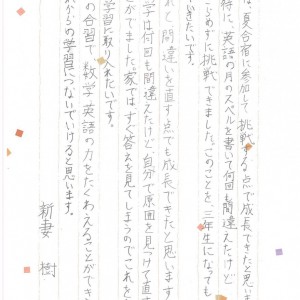 は、夏合宿に参加して挑戦する点で成長できたと思いま
特に、英語の月のスペルを書いて何回も間違えたけど
らめずに挑戦できました。このことを、三年生になっても
いきたいです。
れと間違いを直す点でも成長できたと思います
学は何回も間違えたけど、自分で原因を見つけて直す
ができました。家では、すぐ答えを見てしまうのでこれを
学習に取り入れたいです。
の合宿で、数学英語の力をたくわえることができ
れからの学習につないでいけると思います。
新妻 樹